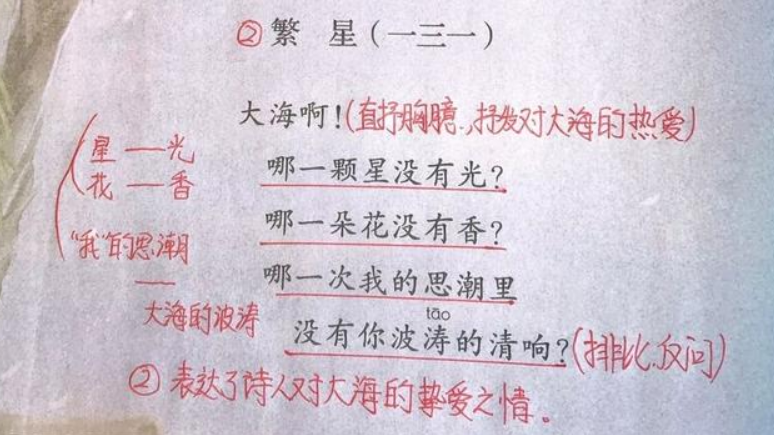 ②繁 星(一三一)
大海啊!(直抒胸臆,抒发对大海的热爱)
星 — 光
哪一颗星没有光?
花 — 香
哪一朵花没有香?
“我”的思潮
哪一次我的思潮里
—
大海的波涛
tāo
没有你波涛的清响?(排比、反问)
② 表达了诗人对大海的挚爱之情。